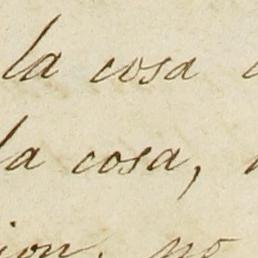 la cosa
la cosa,
ion. no